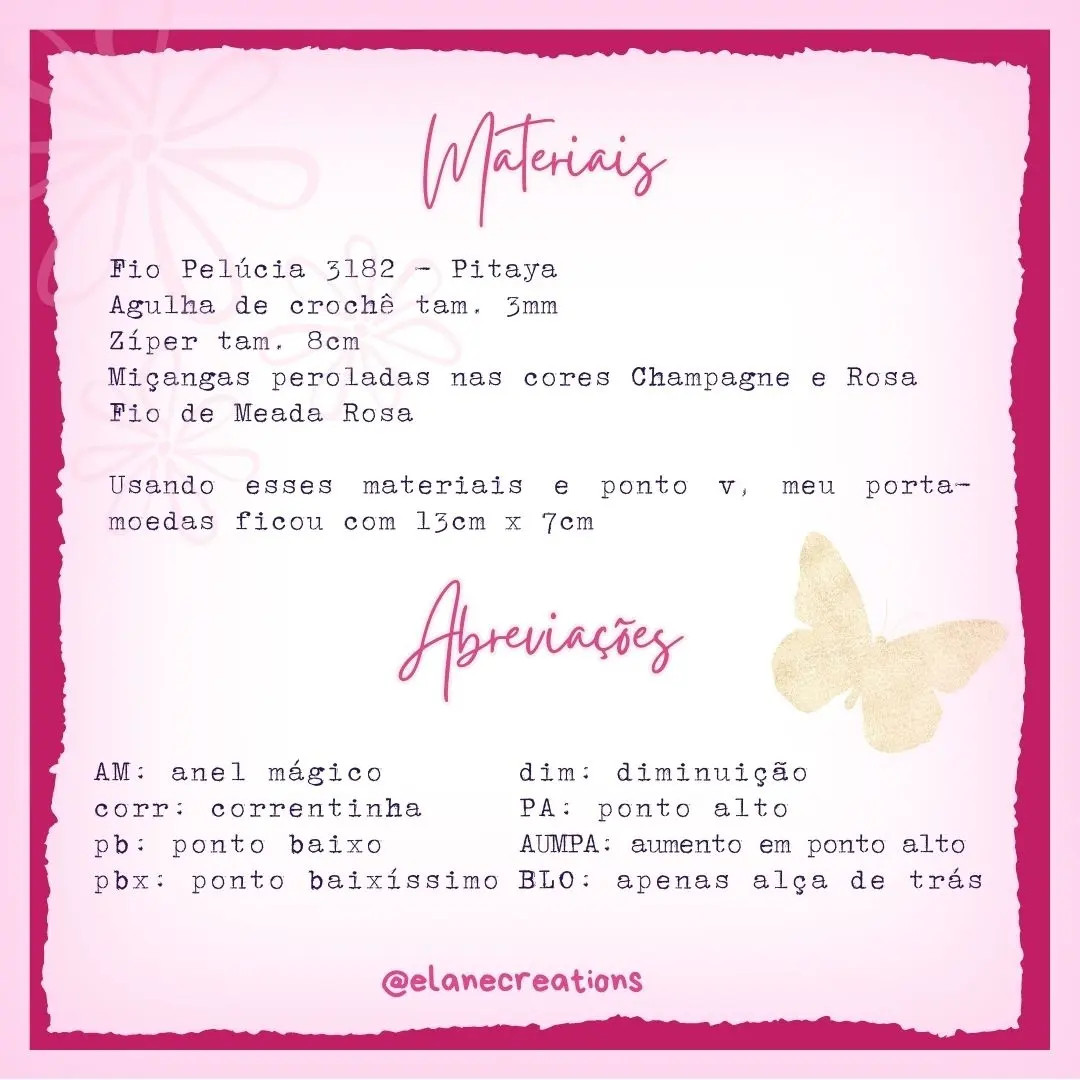 Materiais
Fio Pelúcia 3182 - Pitaya
Agulha de crochê tam. 3mm
Zíper tam. 8cm
Miçangas peroladas nas cores Champagne e Rosa
Fio de Meada Rosa
Usando esses materiais e ponto v, meu porta-
moedas ficou com 13cm x 7cm
Abreviações
AM: anel mágico
corr: correntinha
pb: ponto baixo
pbx: ponto baixíssimo
dim: diminuição
PA: ponto alto
AUMPA: aumento em ponto alto
BLO: apenas alça de trás
@elanecreations